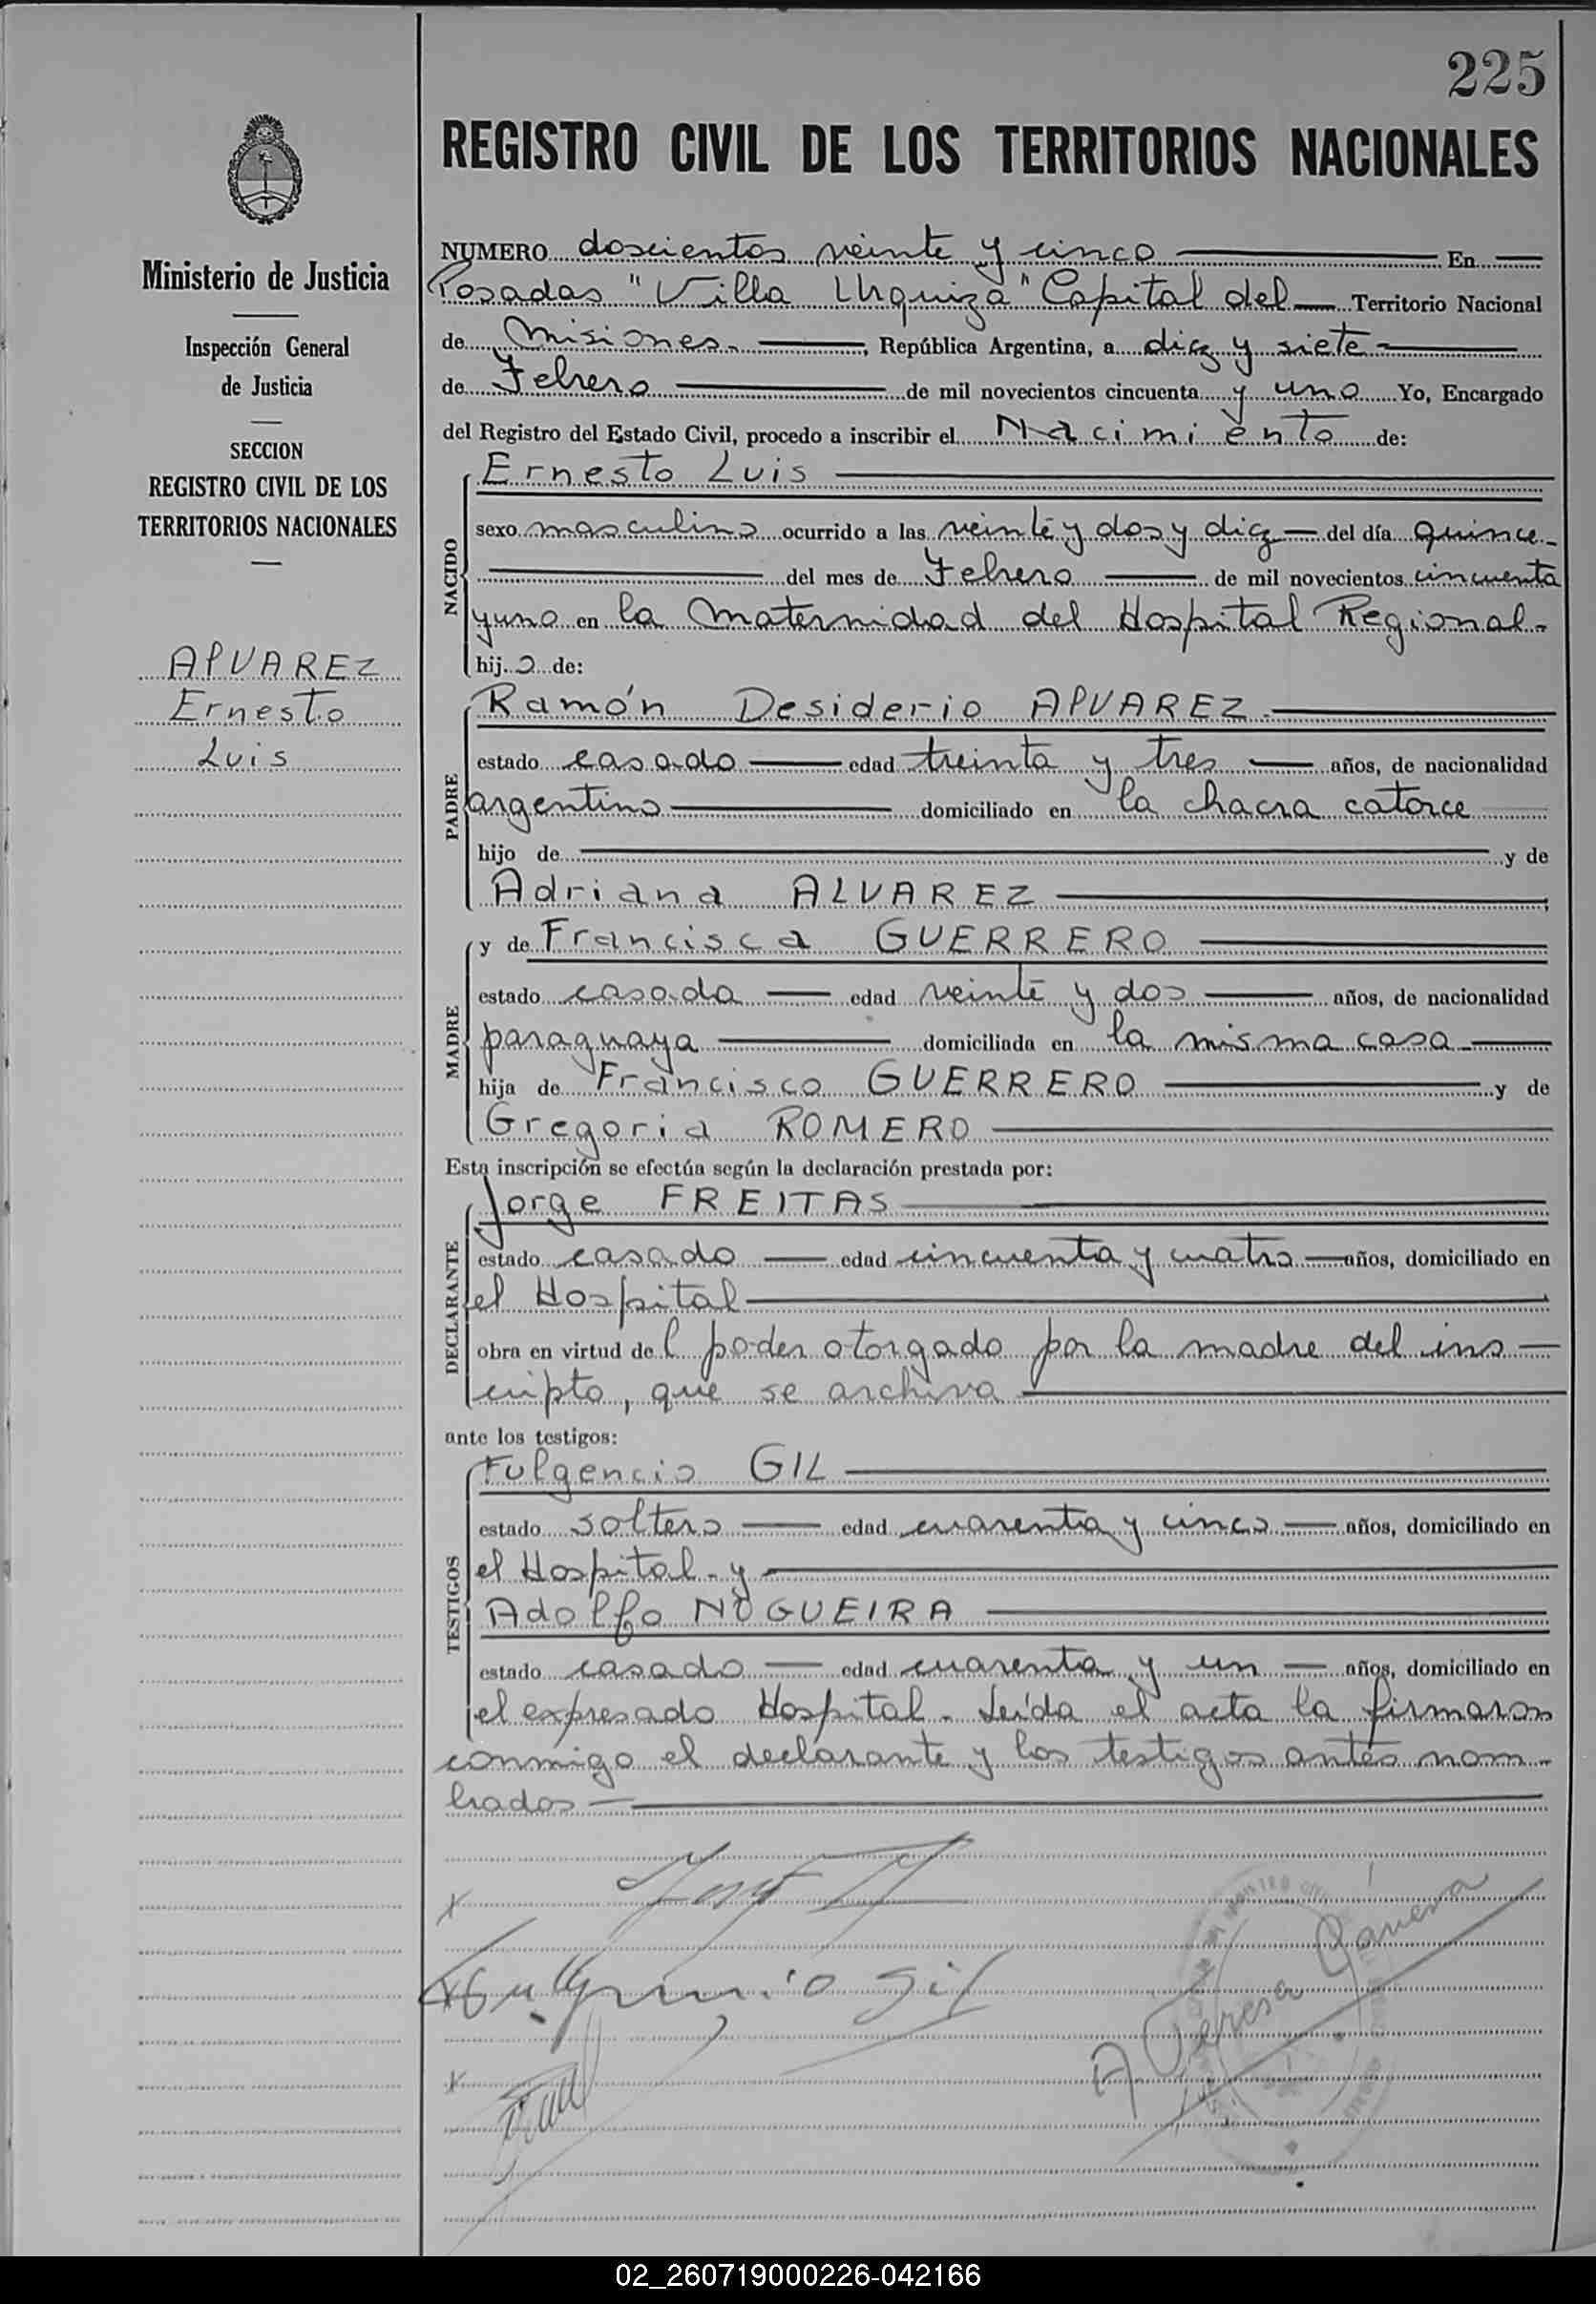 225
REGISTRO CIVIL DE LOS TERRITORIOS NACIONALES
Ministerio de Justicia
Inspección General
de Justicia
SECCION
REGISTRO CIVIL DE LOS
TERRITORIOS NACIONALES
ALVAREZ
Ernesto
Luis
NUMERO doscientos veinte y cinco En
Posadas "Villa Urquiza" Capital del Territorio Nacional
de Misiones. , República Argentina, a diez y siete
de Febrero de mil novecientos cincuenta y uno Yo, Encargado
del Registro del Estado Civil, procedo a inscribir el Nacimiento de:
NACIDO
Ernesto Luis
sexo masculino ocurrido a las veinte y dos y diez del día quince
del mes de Febrero de mil novecientos cincuenta
y uno en la Maternidad del Hospital Regional.
hijo de:
PADRE
Ramón Desiderio ALVAREZ.
estado casado edad treinta y tres años, de nacionalidad
argentino domiciliado en la chacra catorce
hijo de y de
Adriana ALVAREZ
MADRE
y de Francisca GUERRERO
estado casada edad veinte y dos años, de nacionalidad
paraguaya domiciliada en la misma casa
hija de Francisco GUERRERO y de
Gregoria ROMERO
Esta inscripción se efectúa según la declaración prestada por:
DECLARANTE
Jorge FREITAS
estado casado edad cincuenta y cuatro años, domiciliado en
el Hospital
obra en virtud del poder otorgado por la madre del ins-
cripto, que se archiva
ante los testigos:
TESTIGOS
Fulgencio GIL
estado soltero edad cuarenta y cinco años, domiciliado en
el Hospital. y
Adolfo NOGUEIRA
estado casado edad cuarenta y un años, domiciliado en
el expresado Hospital. Leída el acta la firmaron
conmigo el declarante y los testigos antes nom-
brados
Fulgencio Gil
02_260719000226-042166